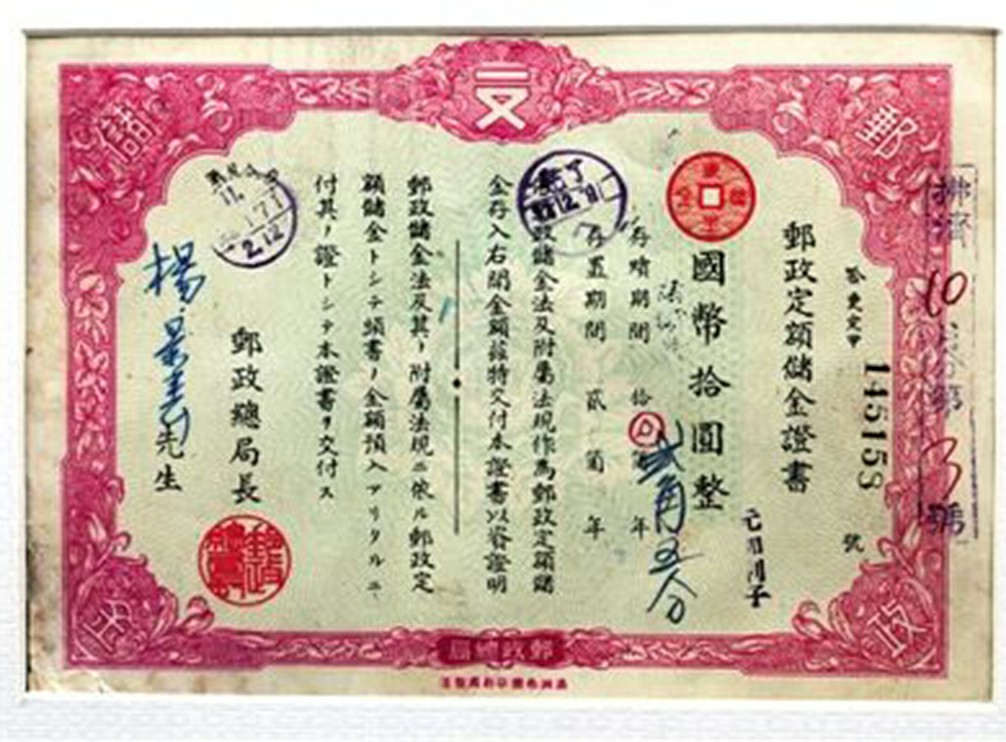 拂濟 10 第 3 號
145158 號
郵政定額儲金證書
國幣拾圓整
存續期間 拾箇年
存置期間 貳箇年
貳角五分
郵政儲金法及附屬法規作為郵政定額儲
金存入右開金額茲特交付本證書以資證明
郵政儲金法及其ノ附屬法規ニ依ル郵政定
額儲金トシテ頭書ノ金額預入アリタルニ
付其ノ證トシテ本證書ヲ交付ス
郵政總局長
楊 先生
郵
政
儲
郵政總局